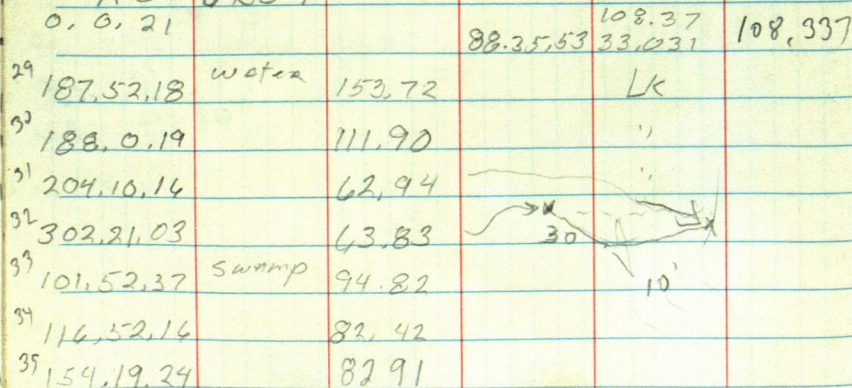 0, 0, 21 108.37
88.35,53 33,031 108,337
29 187,52,18 water 153,72 LK
30 188, 0, 19 111,90 "
31 204,10,16 62,94 "
32 302,21,03 63.83 30
33 101,52,37 swamp 94.82 10'
34 116,52,16 82,42
35 154,19,24 82 91